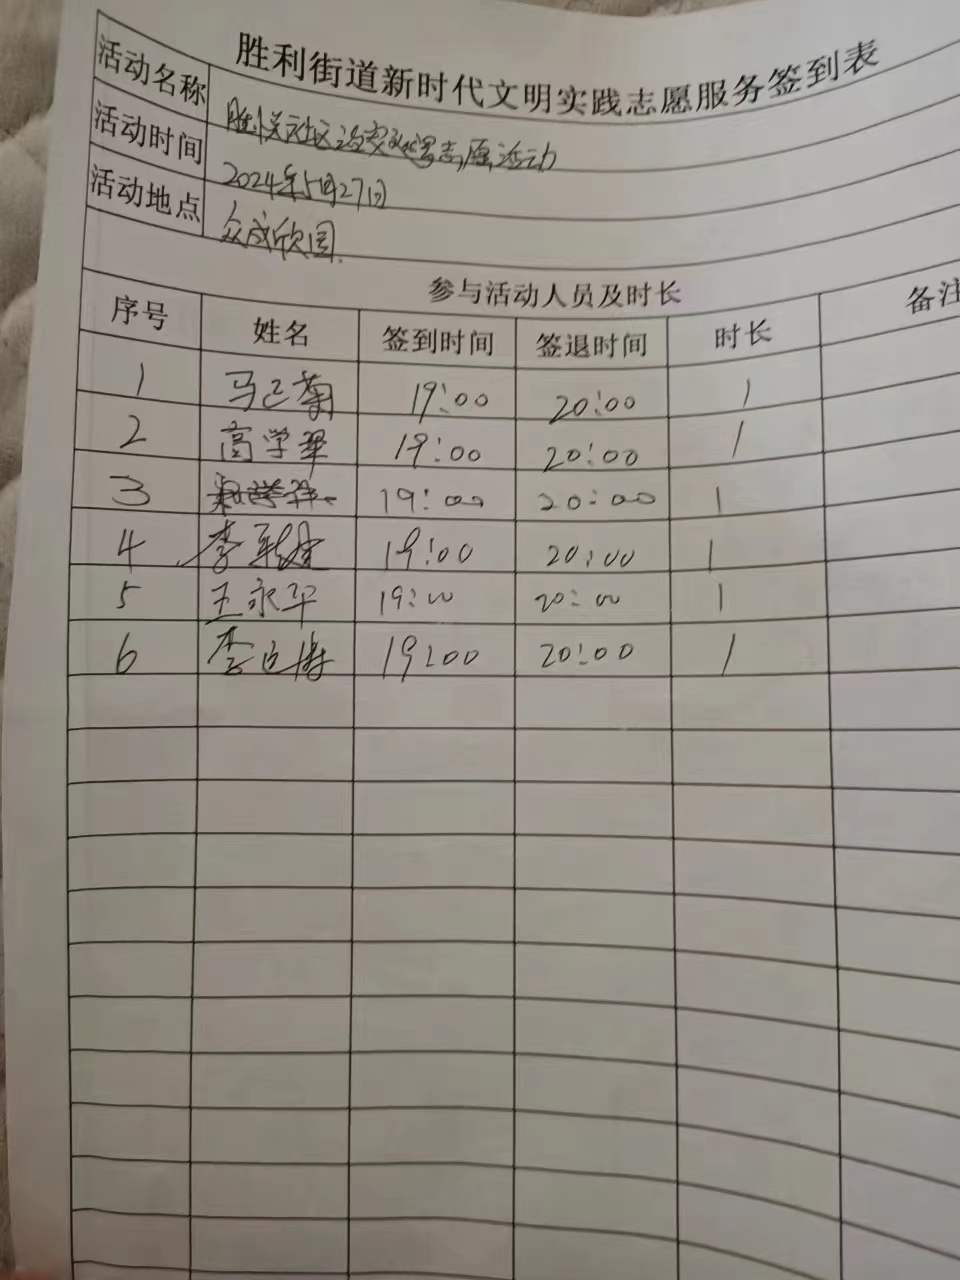 胜利街道新时代文明实践志愿服务签到表
活动名称
活动时间 2024年5月27日
活动地点 众成欣园.
参与活动人员及时长
序号 姓名 签到时间 签退时间 时长 备注
1 19:00 20:00 1
2 高学翠 19:00 20:00 1
3 19:00 20:00 1
4 19:00 20:00 1
5 王永平 19:00 20:00 1
6 19:00 20:00 1